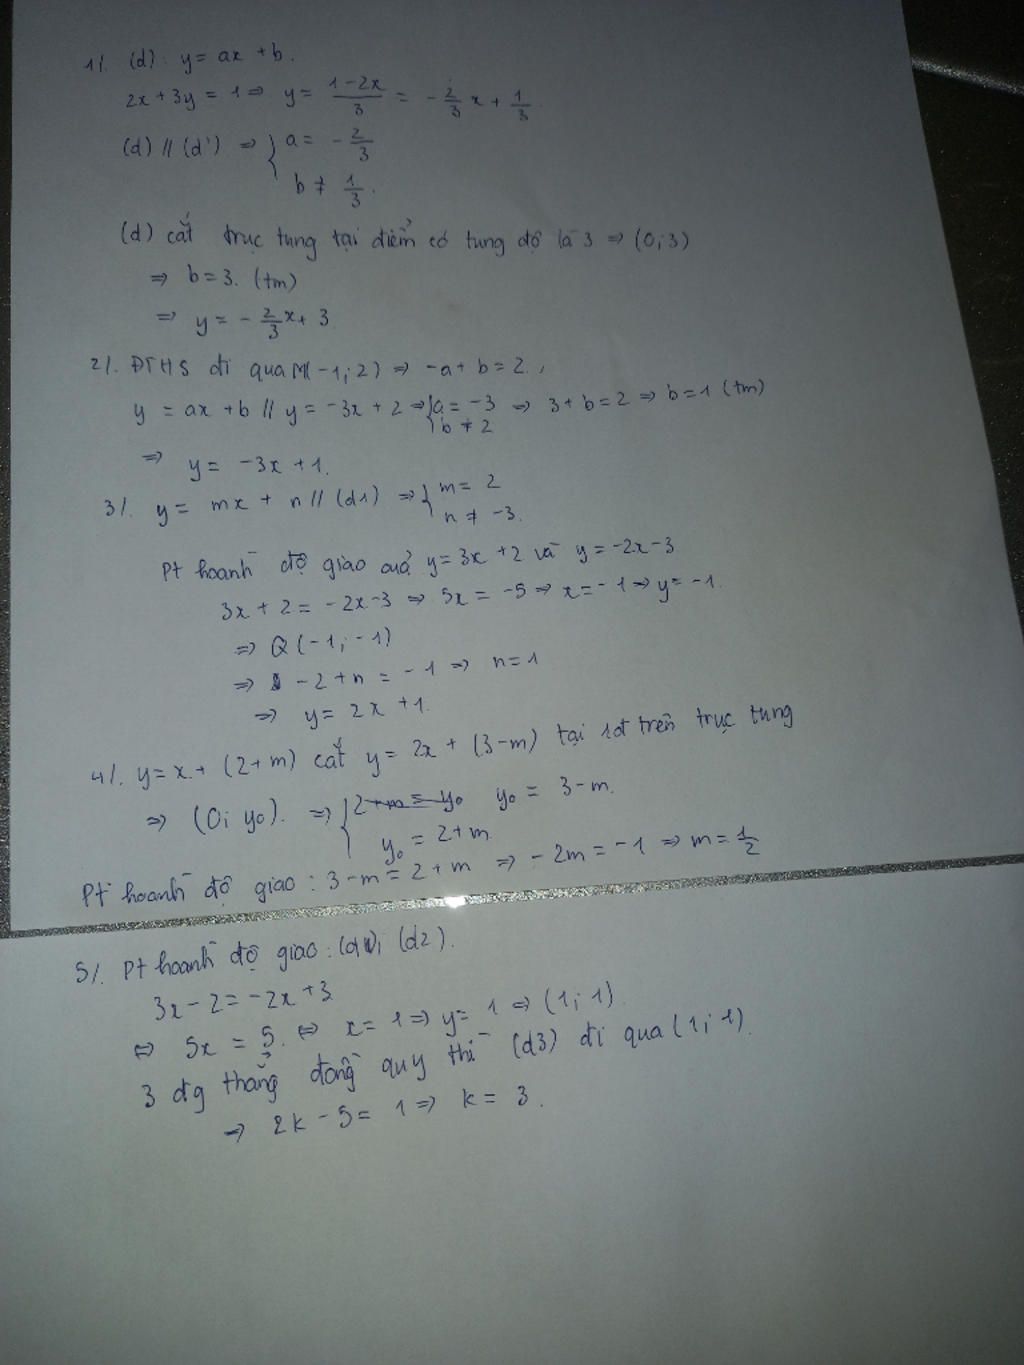 1/. (d): y = ax + b.
2x + 3y = 1 ⇒ y = \frac{1-2x}{3} = -\frac{2}{3}x + \frac{1}{3}.
(d) // (d') ⇒ { a = -\frac{2}{3}
b ≠ \frac{1}{3}.
(d) cắt trục tung tại điểm có tung độ là 3 ⇒ (0; 3)
⇒ b = 3. (tm)
⇒ y = -\frac{2}{3}x + 3
2/. ĐTHS đi qua M(-1; 2) ⇒ -a + b = 2.
y = ax + b // y = -3x + 2 ⇒ { a = -3 ⇒ 3 + b = 2 ⇒ b = 1 (tm)
b ≠ 2
⇒ y = -3x + 1.
3/. y = mx + n // (d1) ⇒ { m = 2
n ≠ -3.
Pt hoành độ giao của y = 3x + 2 và y = -2x - 3
3x + 2 = -2x - 3 ⇒ 5x = -5 ⇒ x = -1 ⇒ y = -1.
⇒ Q (-1; -1)
⇒ -2 + n = -1 ⇒ n = 1
⇒ y = 2x + 1.
4/. y = x + (2 + m) cắt y = 2x + (3 - m) tại 1đ trên trục tung
⇒ (0; y₀). ⇒ { 2 + m = y₀ y₀ = 3 - m.
y₀ = 2 + m
Pt hoành độ giao: 3 - m = 2 + m ⇒ -2m = -1 ⇒ m = \frac{1}{2}
5/. Pt hoành độ giao: (d1); (d2).
3x - 2 = -2x + 3
⇔ 5x = 5. ⇔ x = 1 ⇒ y = 1 ⇒ (1; 1)
3 đg thẳng đồng quy thì (d3) đi qua (1; 1).
⇒ 2k - 5 = 1 ⇒ k = 3.